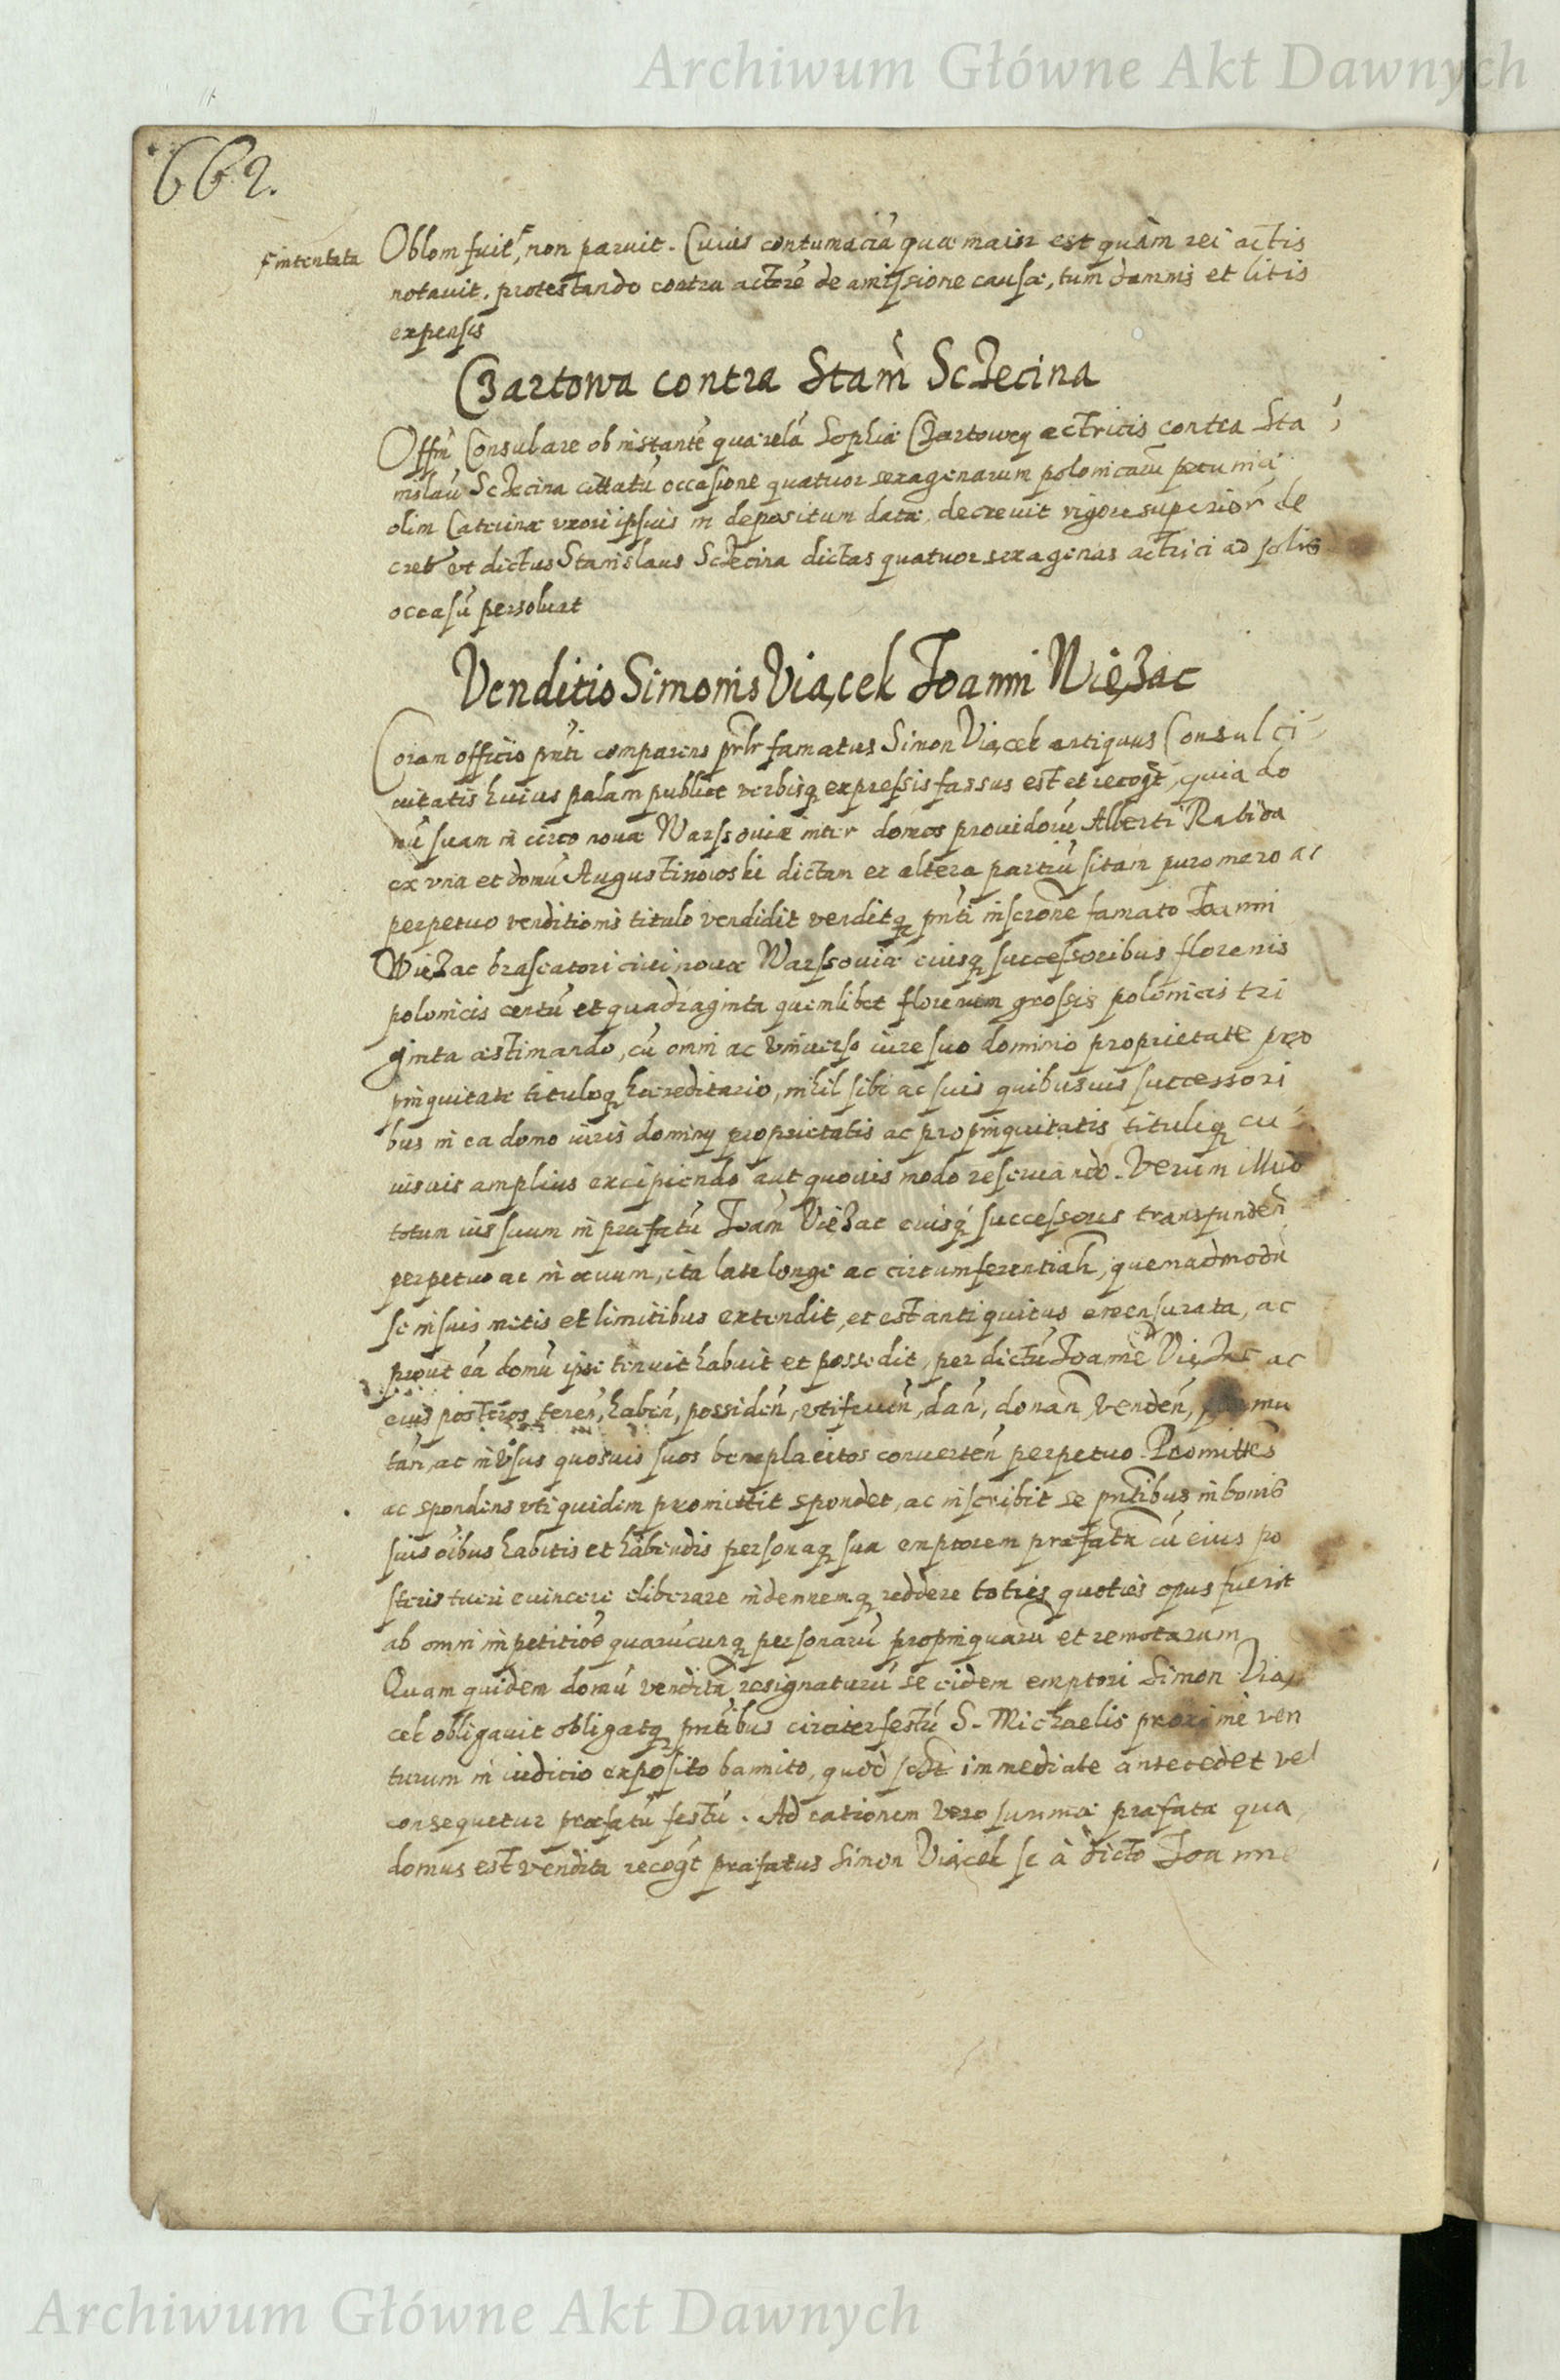 Archiwum Główne Akt Dawnych
662.
intentata
Oblom fuit, non paruit. Cuius contumaciã quæ maior est quàm rei actis
notauit, protestando contra actorẽ de amissione causæ, tum damnis et litis
expensis
Czartowa contra Stañ Sczecina
Offm̃ Consulare ob instantẽ quærelã Sophiæ Czartowey actricis contra Sta
nislaũ Sczecina cittatũ occasione quatuor sexagenarum polonicarũ pecuniæ
olim Catrinæ uxori ipsius in depositum datæ, decreuit rigore superior̃ de
cret̃ ut dictus Stanislaus Sczecina dictas quatuor sexagenas actrici ad solis
occasũ persoluat
Venditio Simonis Viącek Joanni Więzac
Coram officio pñti comparens pr̃lr famatus Simon Viącek antiquus Consul ci
uitatis huius palam publice verbisq expressis fassus est et recogt, quia do
mũ suam in circo nouæ Warssouiæ inter domos prouidorũ Alberti Rabida
ex vna et domũ Augustinowski dictam ex altera partiũ sitam puro mero ac
perpetuo venditionis titulo vendidit venditq pñti inscrone famato Joanni
Więzac braseatori ciui nouæ Warssouiæ eiusq successoribus florenis
polonicis centũ et quadraginta quemlibet florenum grossis polonicis tri
ginta æstimando, cũ omni ac vniuerso iure suo dominio proprietate pro
pinquitate tituloq hæreditario, nihil sibi ac suis quibusuis successori
bus in ea domo iuris dominij proprietatis ac propinquitatis tituliq cu
iusuis amplius excipiendo aut quouis modo reseruando. Verum illud
totum ius suum in præfatũ Joañ Viezac eiusq successores transfundeñ
perpetuo ac in æuum, ita late longe ac circumferentiałr, quemadmodũ
se in suis metis et limitibus extendit, et est antiquitus emensurata, ac
prout eã domũ ipse tenuit habuit et possedit, per dictũ Joannẽ Viezac ac
eius posteros teneñ, habeñ, possideñ, vtifrueñ, dañ, donañ, vendeñ, mu
tañ, ac in vsus quosuis suos beneplacitos conuerteñ perpetuo. Promittẽs
ac spondens vti quidem promittit spondet, ac inscribit se pñtibus in bonis
suis oĩbus habitis et habendis personaq sua emptorem præfatũ cũ eius po
steris tueri euincere eliberare indemnemq reddere toties quoties opus fuerit
ab omni inpetitiõe quarũcunq personarũ propinquarũ et remotarum
Quam quidem domũ venditã resignaturũ se eidem emptori Simon Vią
cek obligauit obligatq pñtibus circiter festũ S. Michaelis proximè ven
turum in iudicio exposito bannito, quod immediate antecedet vel
consequetur præfatũ festũ. Ad rationem vero summæ præfatæ qua
domus est vendita recogt præfatus Simon Viącek se à dicto Joanne
Archiwum Główne Akt Dawnych